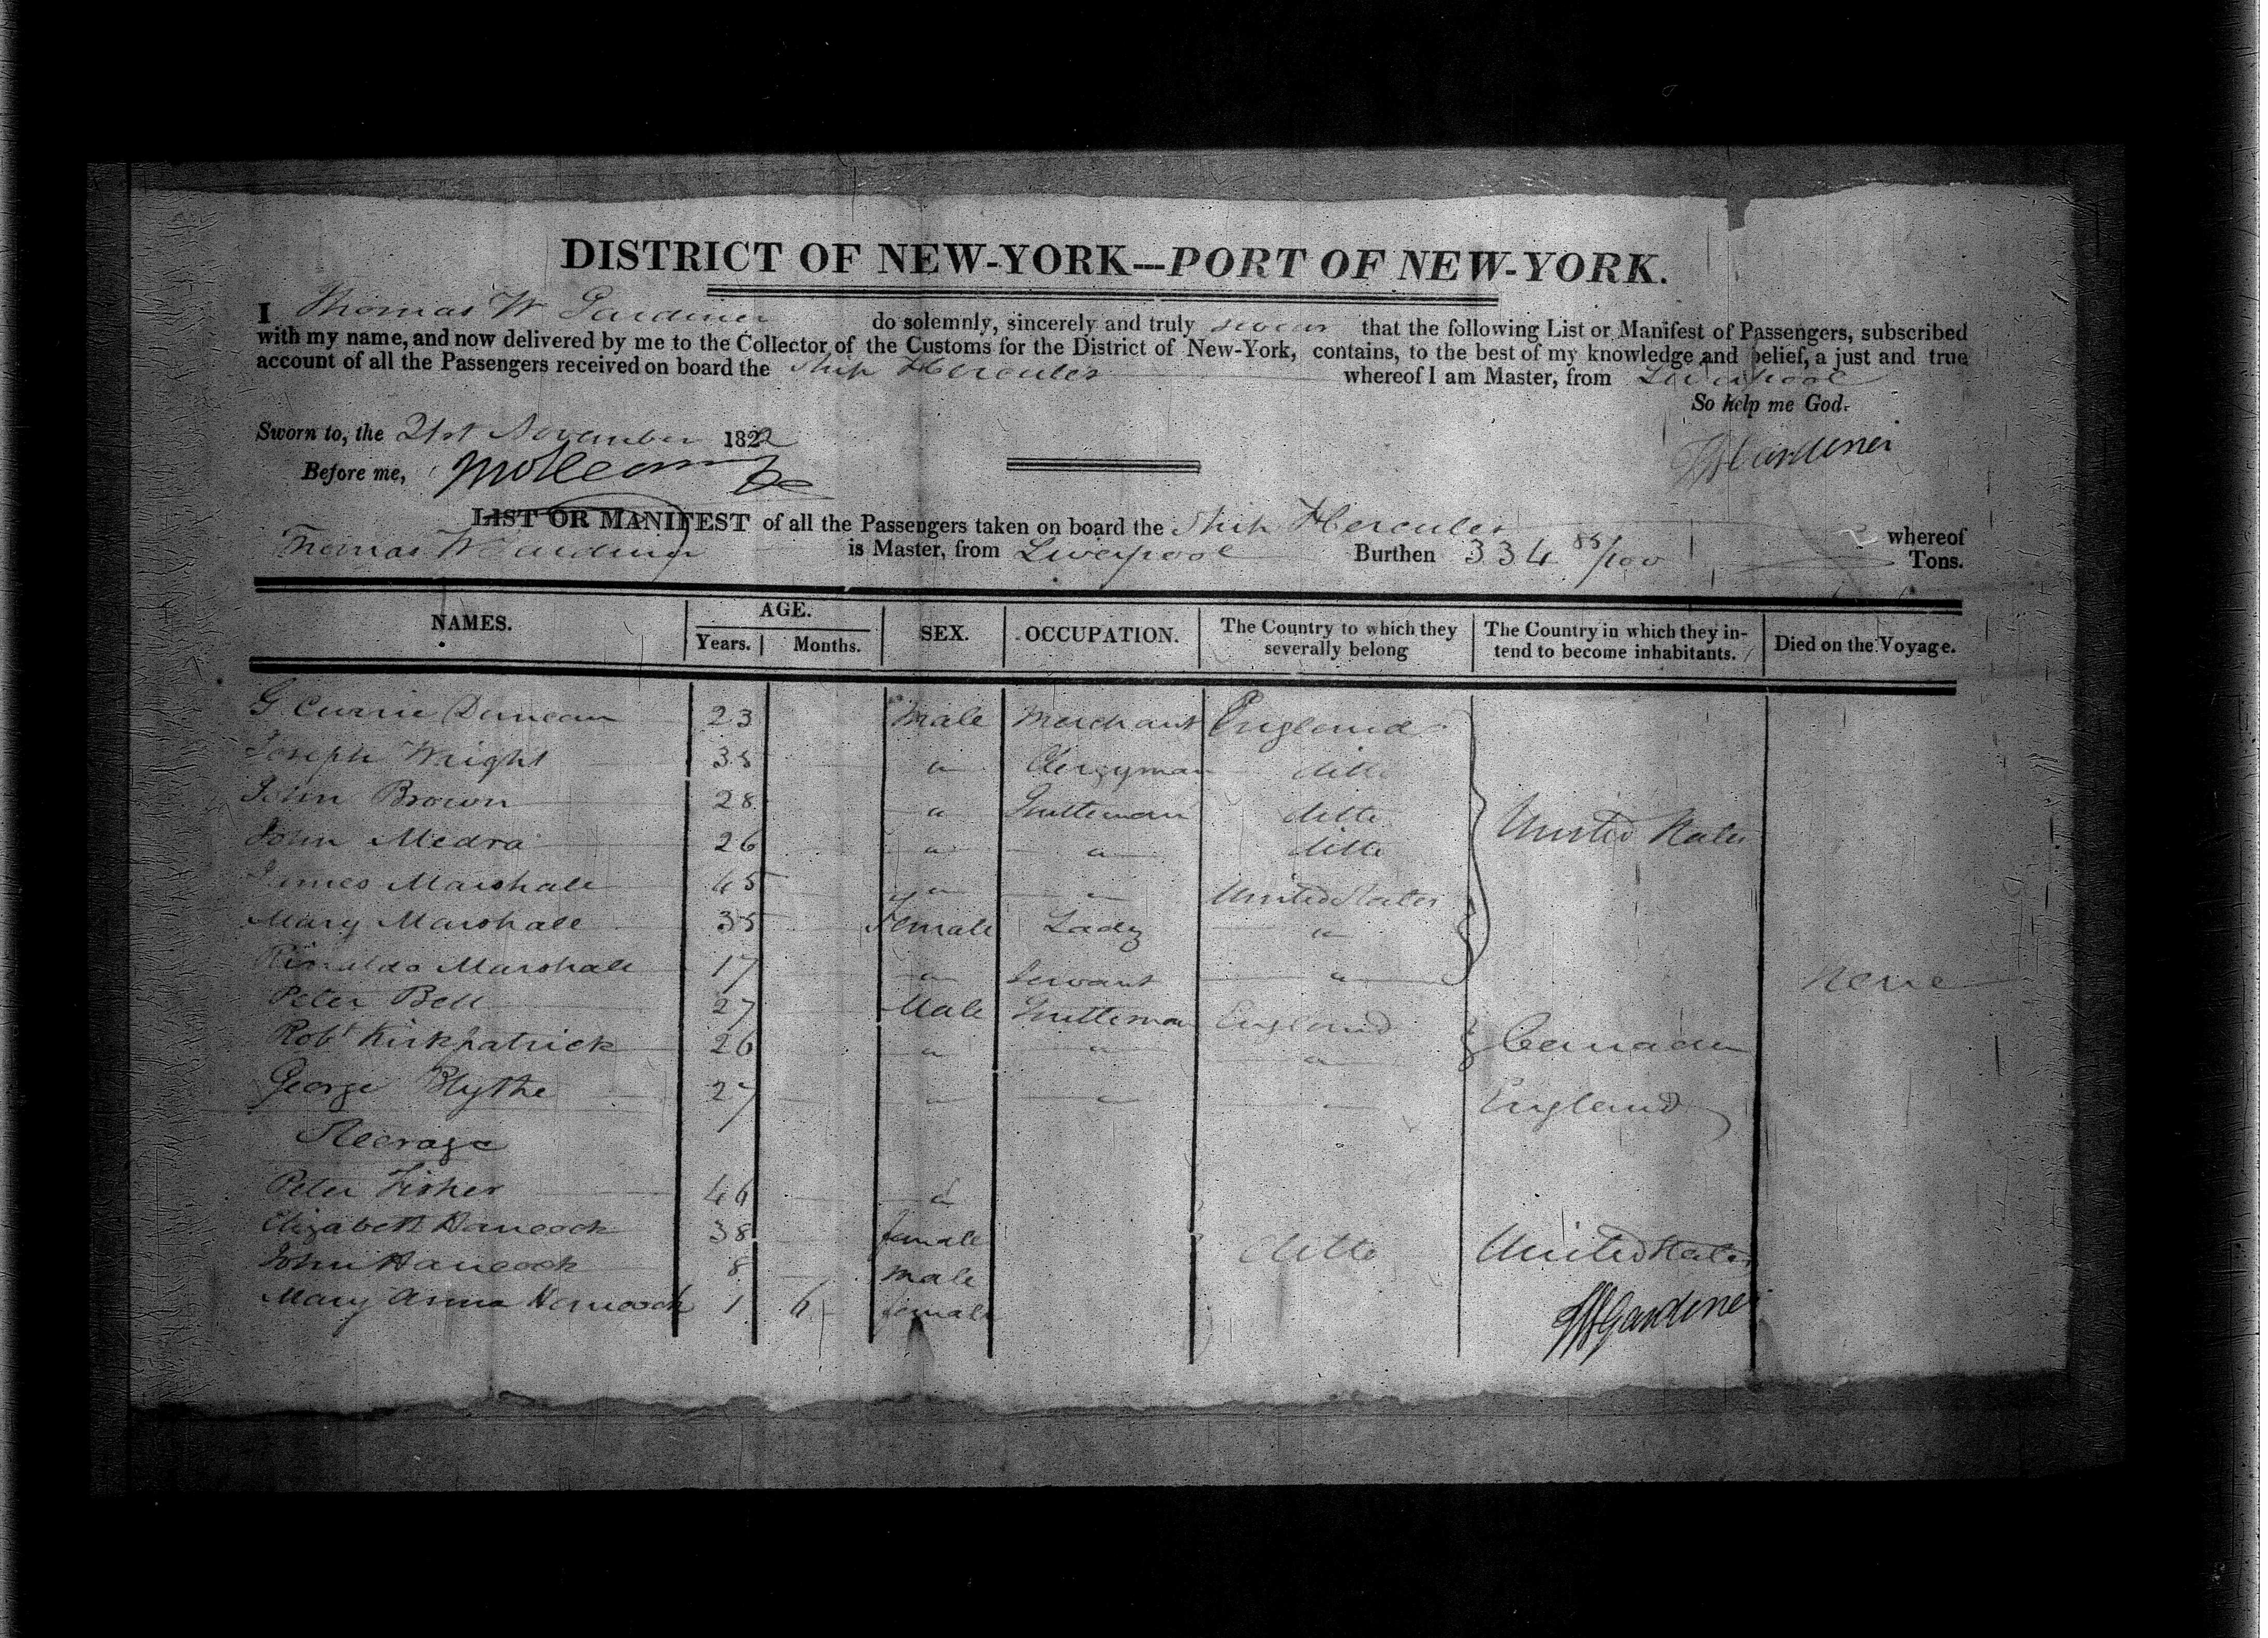 DISTRICT OF NEW-YORK---PORT OF NEW-YORK.
I Thomas W Gardiner do solemnly, sincerely and truly swear that the following List or Manifest of Passengers, subscribed
with my name, and now delivered by me to the Collector of the Customs for the District of New-York, contains, to the best of my knowledge and belief, a just and true
account of all the Passengers received on board the Ship Hercules whereof I am Master, from Liverpool
So help me God.
Sworn to, the 21st November 1822
T W Gardiner
Before me,
LIST OR MANIFEST of all the Passengers taken on board the Ship Hercules whereof
Thomas W Gardiner is Master, from Liverpool Burthen 334 85/100 Tons.
NAMES. AGE. Years. Months. SEX. OCCUPATION. The Country to which they severally belong The Country in which they intend to become inhabitants. Died on the Voyage.
G Currie Duncan 23 Male Merchant England
Joseph Wright 35 " Clergyman ditto
John Brown 28 " Gentleman ditto United States
John Medra 26 " " ditto
James Marshall 45 " " United States
Mary Marshall 35 Female Lady "
Rinaldo Marshall 17 " Servant " None
Peter Bell 27 Male Gentleman England
Robt Kirkpatrick 26 " " " Canada
George Blythe 27 " " " England
Steerage
Peter Fisher 46 "
Elizabeth Hancock 38 female ditto United States
John Hancock 8 male
Mary Anna Hancock 1 6 female
T W Gardiner